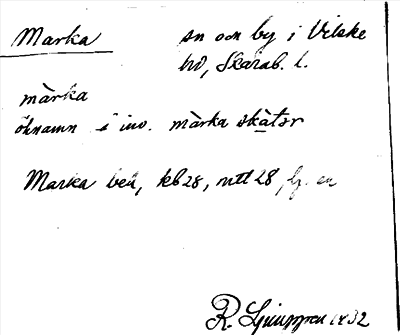 Marka sn och by i Vilske
hd, Skarab. l.
màrka
öknamn i inv. màrka skàtər
Marka beb, kb 28, mtl 28, lj. en
R. Ljunggren 1932